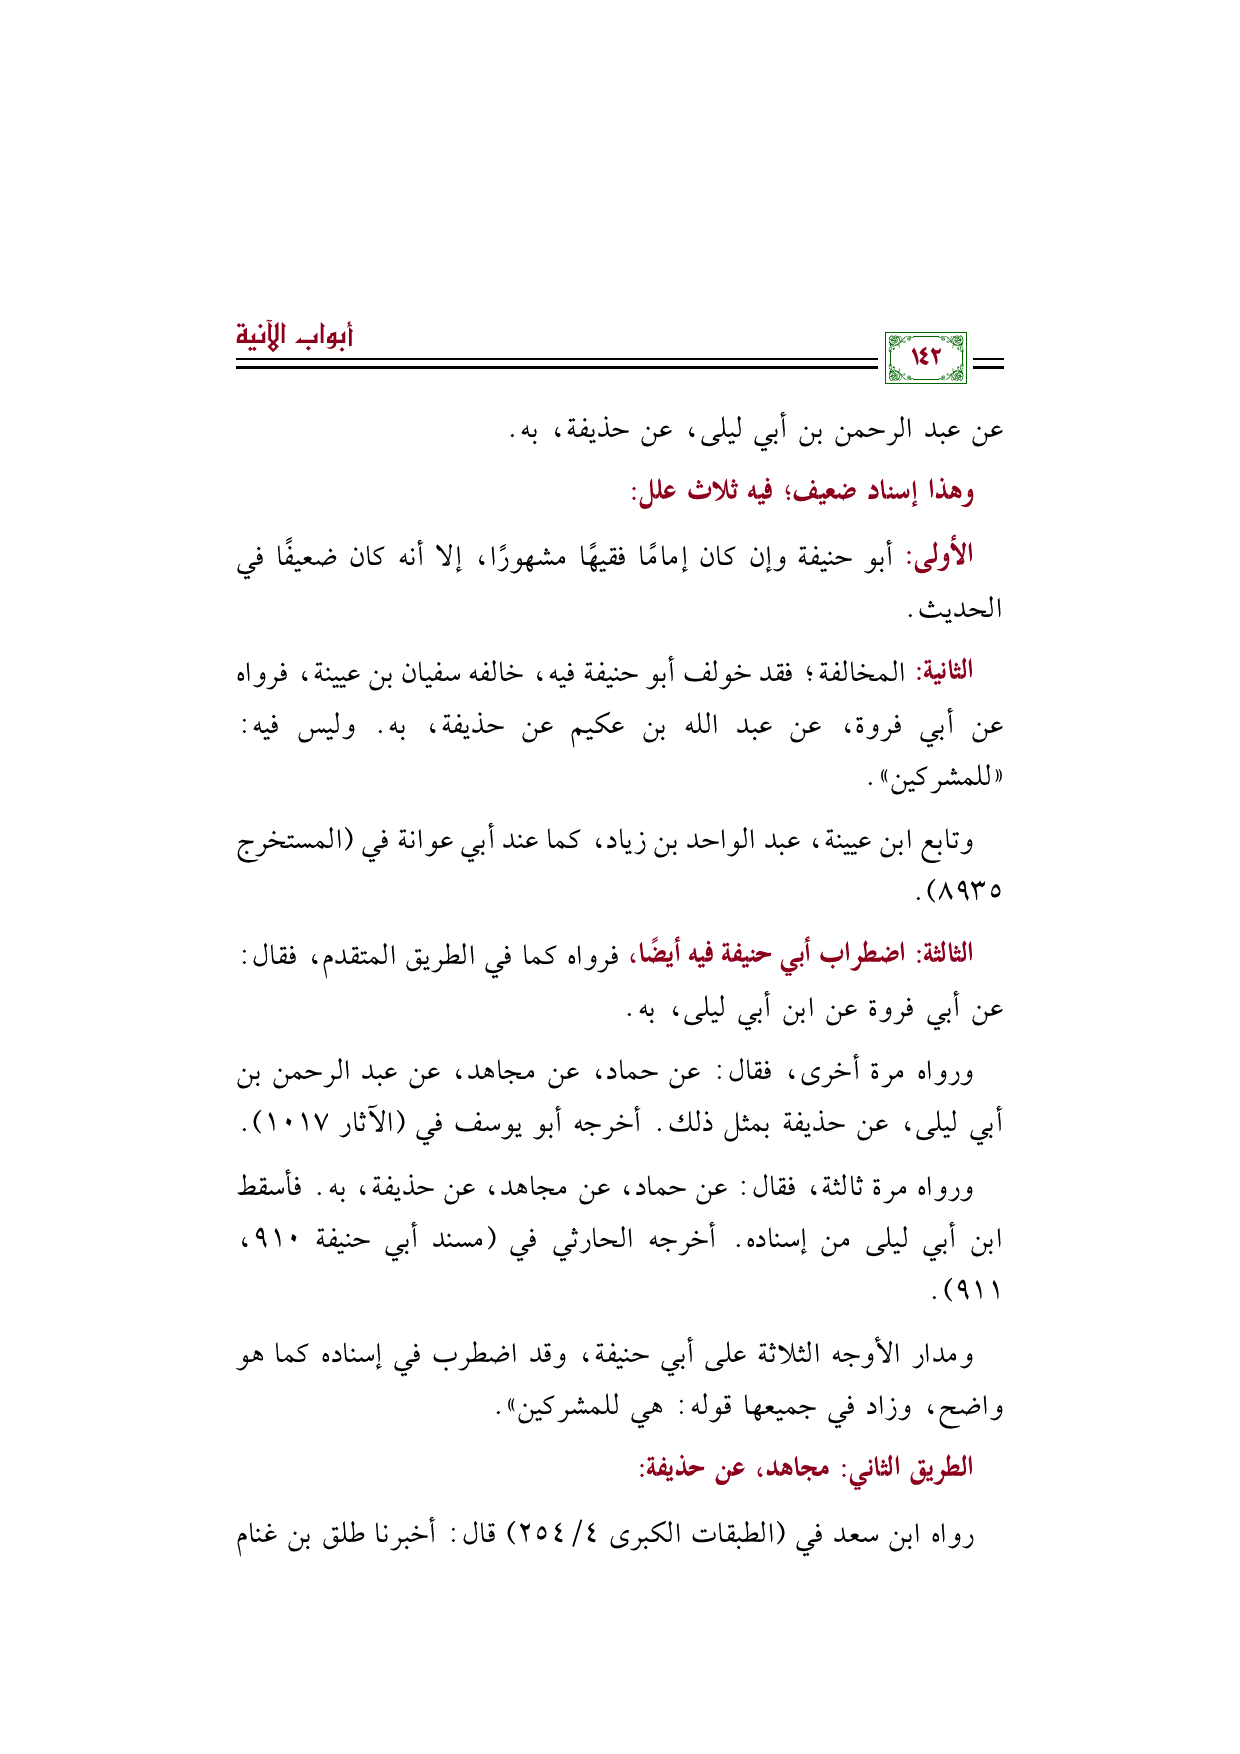 أبواب الآنية
١٤٢
عن عبد الرحمن بن أبي ليلى، عن حذيفة، به.
وهذا إسناد ضعيف؛ فيه ثلاث علل:
الأولى: أبو حنيفة وإن كان إمامًا فقيهًا مشهورًا، إلا أنه كان ضعيفًا في
الحديث.
الثانية: المخالفة؛ فقد خولف أبو حنيفة فيه، خالفه سفيان بن عيينة، فرواه
عن أبي فروة، عن عبد الله بن عكيم عن حذيفة، به. وليس فيه:
«للمشركين».
وتابع ابن عيينة، عبد الواحد بن زياد، كما عند أبي عوانة في (المستخرج
٨٩٣٥).
الثالثة: اضطراب أبي حنيفة فيه أيضًا، فرواه كما في الطريق المتقدم، فقال:
عن أبي فروة عن ابن أبي ليلى، به.
ورواه مرة أخرى، فقال: عن حماد، عن مجاهد، عن عبد الرحمن بن
أبي ليلى، عن حذيفة بمثل ذلك. أخرجه أبو يوسف في (الآثار ١٠١٧).
ورواه مرة ثالثة، فقال: عن حماد، عن مجاهد، عن حذيفة، به. فأسقط
ابن أبي ليلى من إسناده. أخرجه الحارثي في (مسند أبي حنيفة ٩١٠،
٩١١).
ومدار الأوجه الثلاثة على أبي حنيفة، وقد اضطرب في إسناده كما هو
واضح، وزاد في جميعها قوله: هي للمشركين».
الطريق الثاني: مجاهد، عن حذيفة:
رواه ابن سعد في (الطبقات الكبرى ٤/ ٢٥٤) قال: أخبرنا طلق بن غنام